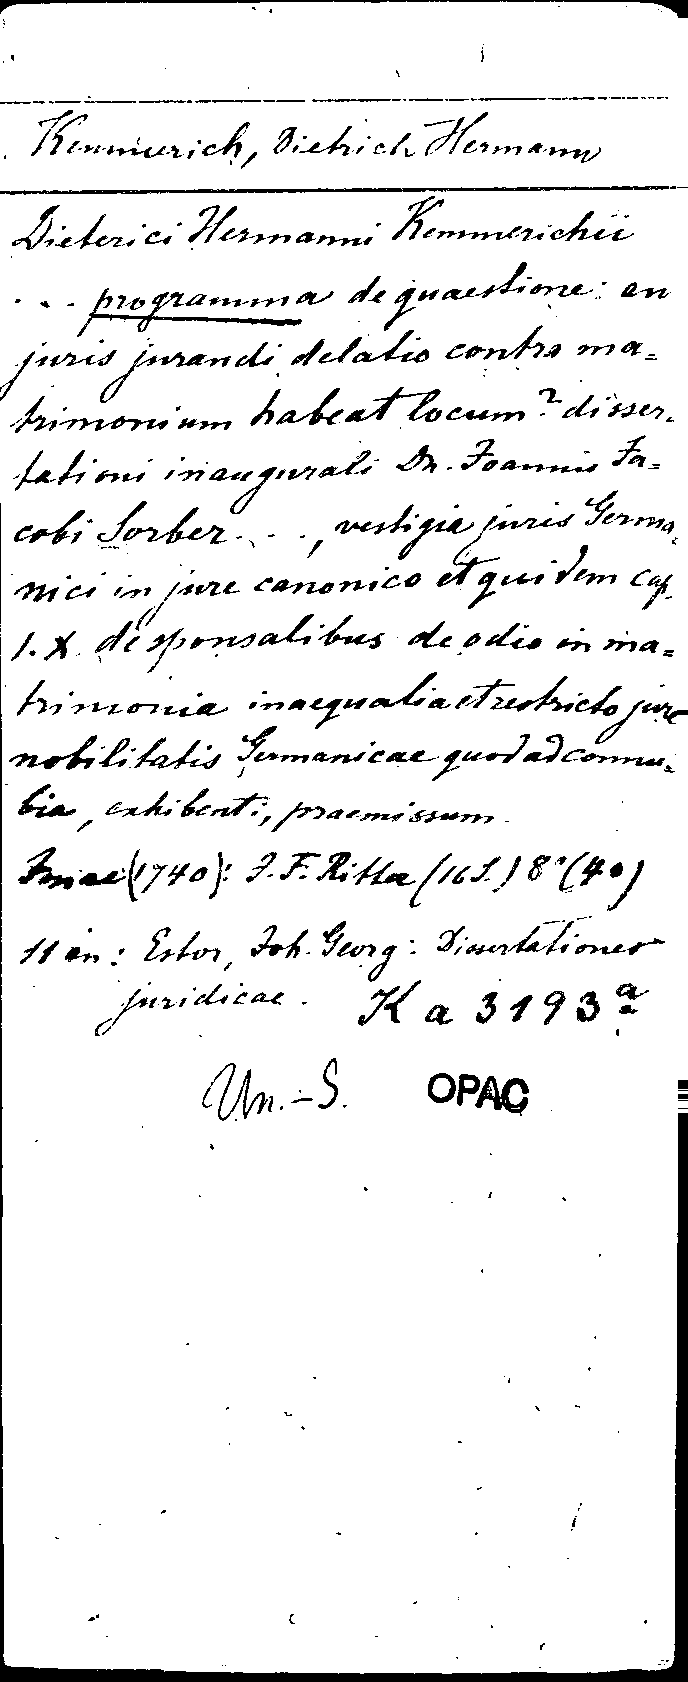 Kemmerich, Dietrich Hermann
Dieterici Hermanni Kemmerichii
... programma de quaestione: an
juris jurandi delatio contra ma=
trimonium habeat locum? disser=
tationi inaugurali Dn. Joannis Ja=
cobi Sorber..., vestigia juris Germa=
nici in jure canonico et quidem cap.
1. X. de sponsalibus de odio in ma=
trimonia inaequalia et restricto jure
nobilitatis Germanicae quod ad connu=
bia, exhibenti, praemissum.
Jenae (1740): J. F. Ritter (16 S.) 8° (4°)
11 in: Estor, Joh. Georg: Dissertationes
juridicae. K a 3193 a
Un.-S. OPAC